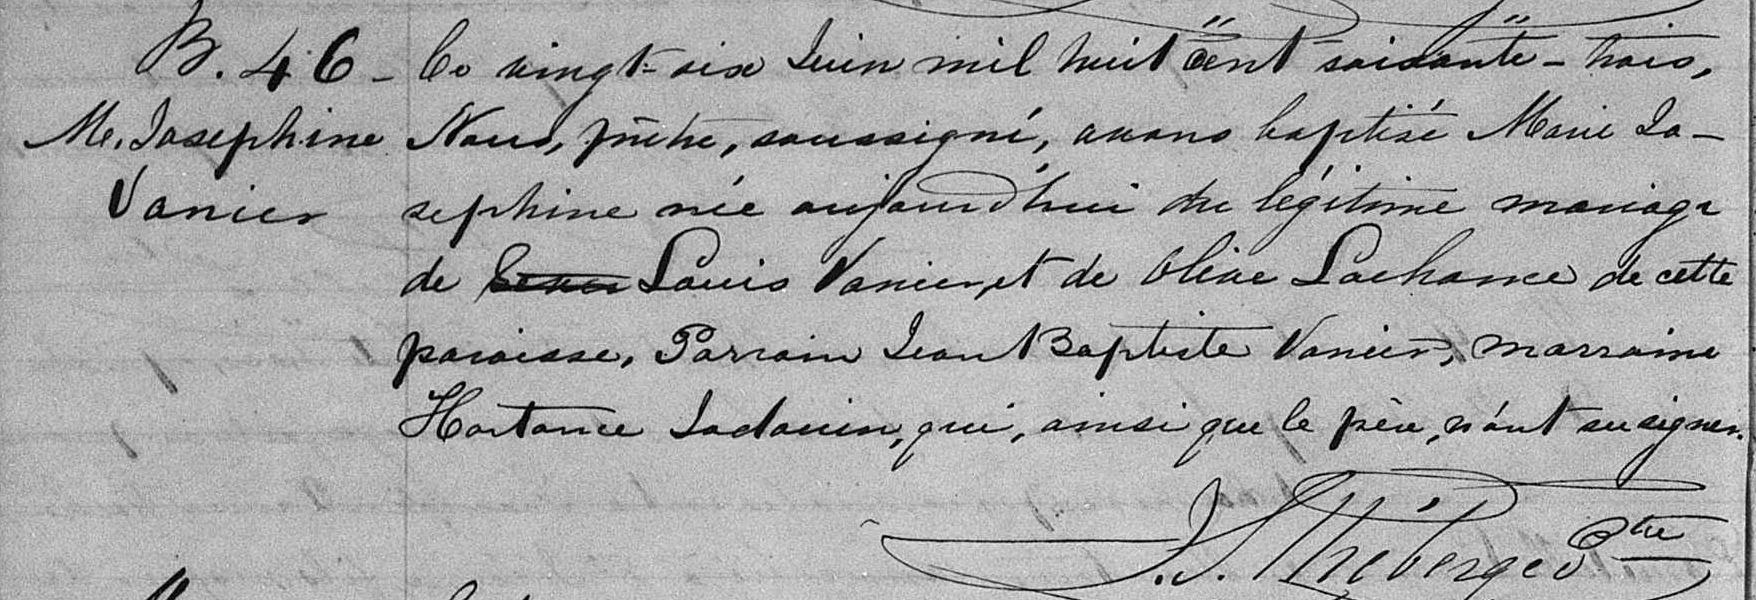 B. 46 - Le vingt-six Juin mil huit cent soixante-trois,
M. Josephine Nous, prêtre, soussigné, avons baptisé Marie Jo-
Vanier sephine née aujourd'hui du légitime mariage
de Louis Vanier, et de Olive Lachance de cette
paroisse, Parrain Jean Baptiste Vanier, marraine
Hortance Jadouin, qui, ainsi que le père, n'ont su signer.
J. S. Théberge Ptre